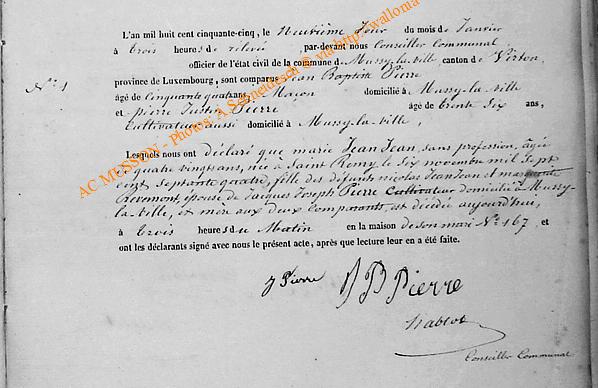 L'an mil huit cent cinquante-cinq, le Neuvième Jour du mois de Janvier
à trois heures de relevée, par-devant nous Conseiller Communal
officier de l'état civil de la commune de Mussy-la-ville canton de Virton,
N° 1
province de Luxembourg, sont comparus Jean Baptiste Pierre
âgé de cinquante quatre ans, Maçon domicilié à Mussy-la-ville
et pierre Justin Pierre âgé de trente six ans,
Cultivateur aussi domicilié à Mussy-la-ville,
Lesquels nous ont déclaré que marie JeanJean, sans profession, âgée
de quatre vingt ans, née à Saint Remy le six novembre mil sept
cent septante quatre, fille des défunts nicolas JeanJean et marguerite
épouse de Jacques Joseph Pierre Cultivateur domicilié à Mussy-
la-ville, et mère aux deux comparants, est décédée aujourd'hui,
à trois heures du Matin en la maison de son mari N° 167 et
ont les déclarants signé avec nous le présent acte, après que lecture leur en a été faite.
J Pierre J B Pierre
Nabtot
Conseiller Communal
AC MUSSON - Photos: A Schneidesch @ via http://walloma